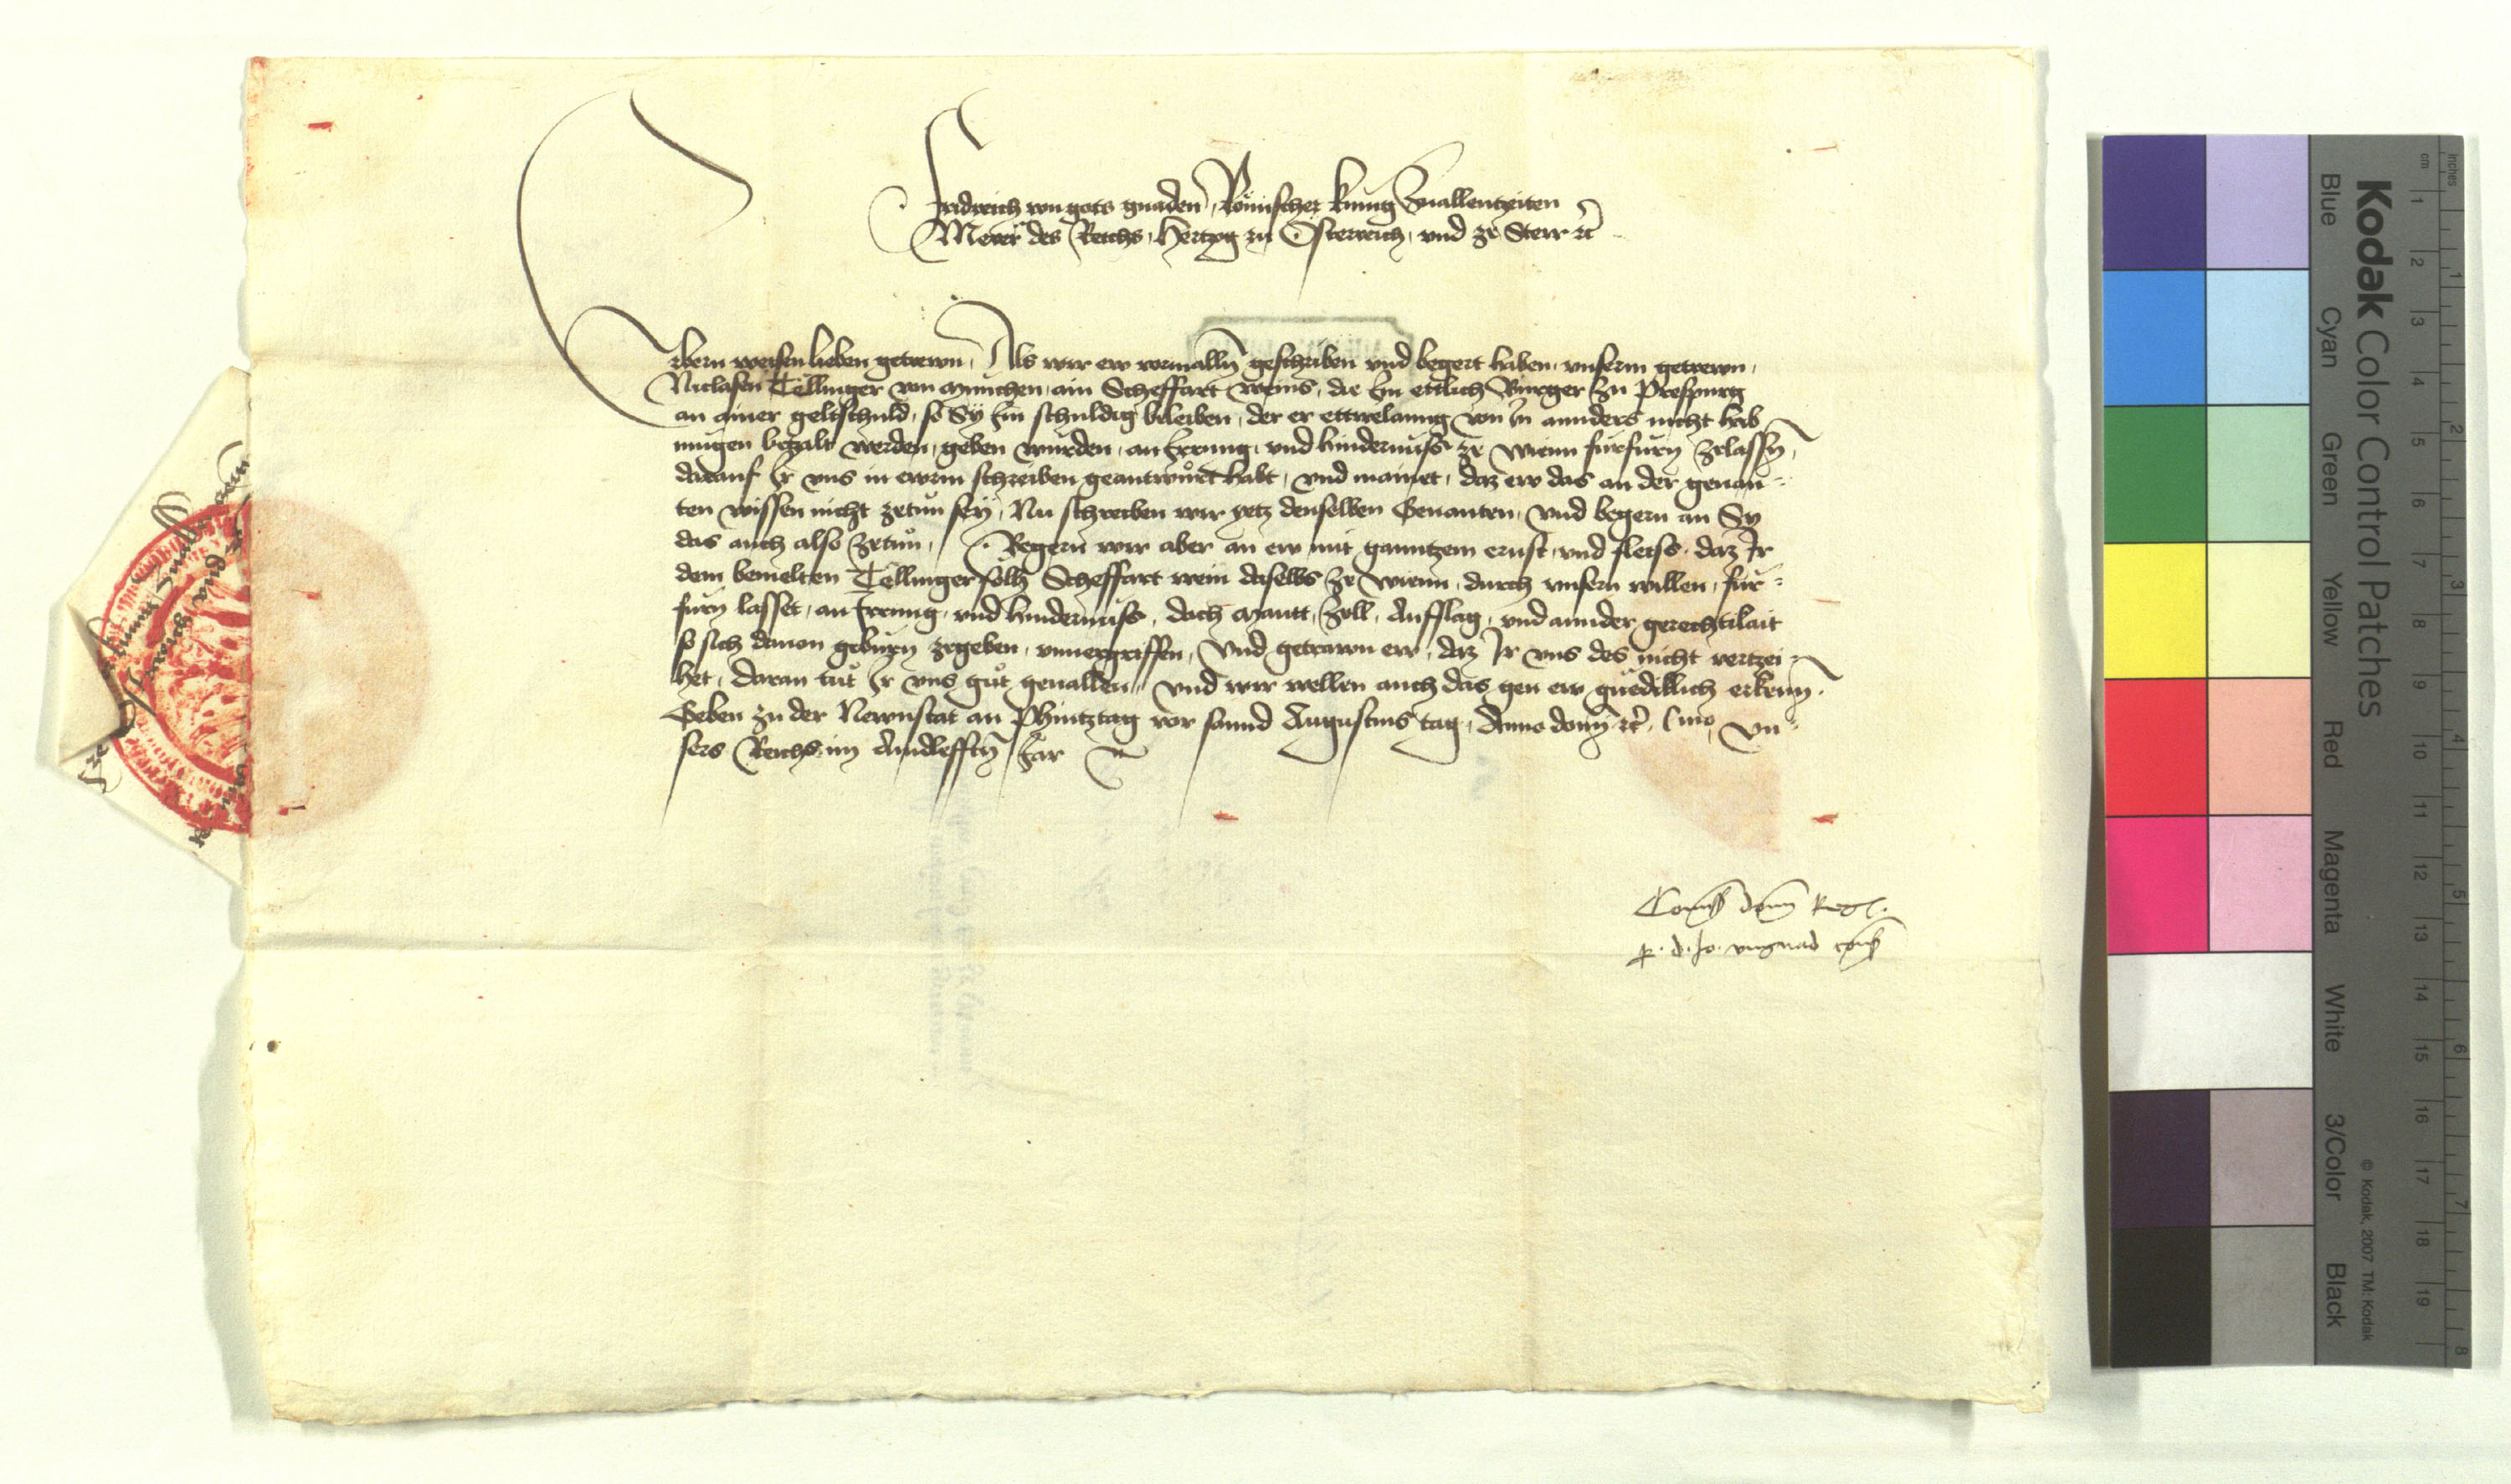 Fridreich von gots gnaden Römischer kunig Zuallentzeiten
Merer des Reichs, Hertzog zu Österreich, vnd ze Steir etc̃
Erbern weisen lieben getrewn, Als wir ew vormalln̄ geschriben vnd begert haben, vnserm getrewn,
Niclasen Tollinger von München, ain Scheffart weins, die Im ettlich Burger Zu Prespurg
an ainer geltschuld, so Sÿ Im schuldig beleiben, der er ettwelanng von In annders nicht hab
mugen betzalt werden, geben wurden, an Irrung, vnd hindernüss ze Wienn fürfürn zelassn̄,
darauf Ir vns in ewrm schreiben geantwürt habt, vnd mainet, daz ew das an der genan=
ten wissen nicht zetůn seÿ, Nu schreiben wir yetz denselben Genanten, vnd begern an Sy
das auch also Zetůn, Begern wir aber an ew mit ganntzem ernst, vnd fleiss, daz Ir
dem bemelten Tollinger solh Scheffart wein daselbs ze Wienn, durch vnsern willen, für=
fürn lasset, an Irrung, vnd hindernüss, doch Mautt, Zoll, Aufslag, vnd annder gerechtikait
so sich dauon gebürn zegeben, vnuergriffen, Vnd getrawn ew, daz Ir vns des nicht vertzei=
het, daran tůt Ir vns gůt geuallen, vnd wir wellen auch das gen ew gnediklich erkenn̄.
Geben zu der Newnstat an Phintztag vor sannd Augustins tag, Anno domī etc̃. lmo, Vn=
sers Reichs im Aindlefftn̄ Jar
Com̄ss domī Regis
p. d. Jo. vngnad
Kodak Color Control Patches
Blue Cyan Green Yellow Red Magenta White 3/Color Black
© Kodak, 2007 TM: Kodak
cm 1 2 3 4 5 6 7 8 9 10 11 12 13 14 15 16 17 18 19
Inches 1 2 3 4 5 6 7 8